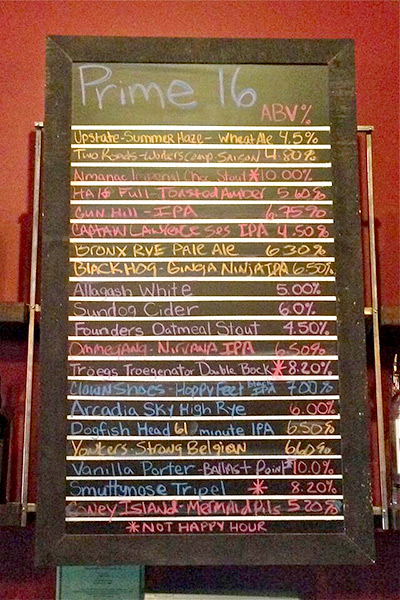 Prime 16
ABV%
Upstate-Summer Haze- Wheat Ale 4.5%
Two Roads-Workers comp Saison 4.80%
Almanac Imperial Choc Stout *10.00%
Half Full-Toasted Amber 5.60%
Gun Hill - IPA 6.75%
Captain Lawrence Ses IPA 4.50%
Bronx Rye Pale Ale 6.30%
Black Hog - Ginga Ninja IPA 6.50%
Allagash White 5.00%
Sundog Cider 6.0%
Founders Oatmeal Stout 4.50%
Ommegang - Nirvana IPA 6.50%
Tröegs Troegenator Double Bock *8.20%
Clown Shoes - Hoppy Feet black IPA 7.00%
Arcadia Sky High Rye 6.00%
Dogfish Head 61 minute IPA 6.50%
Yonkers - Strong Belgian 6.60%
Vanilla Porter - Ballast Point *10.0%
Smuttynose Tripel * 8.20%
Coney Island - Mermaid Pils 5.20%
*NOT HAPPY HOUR